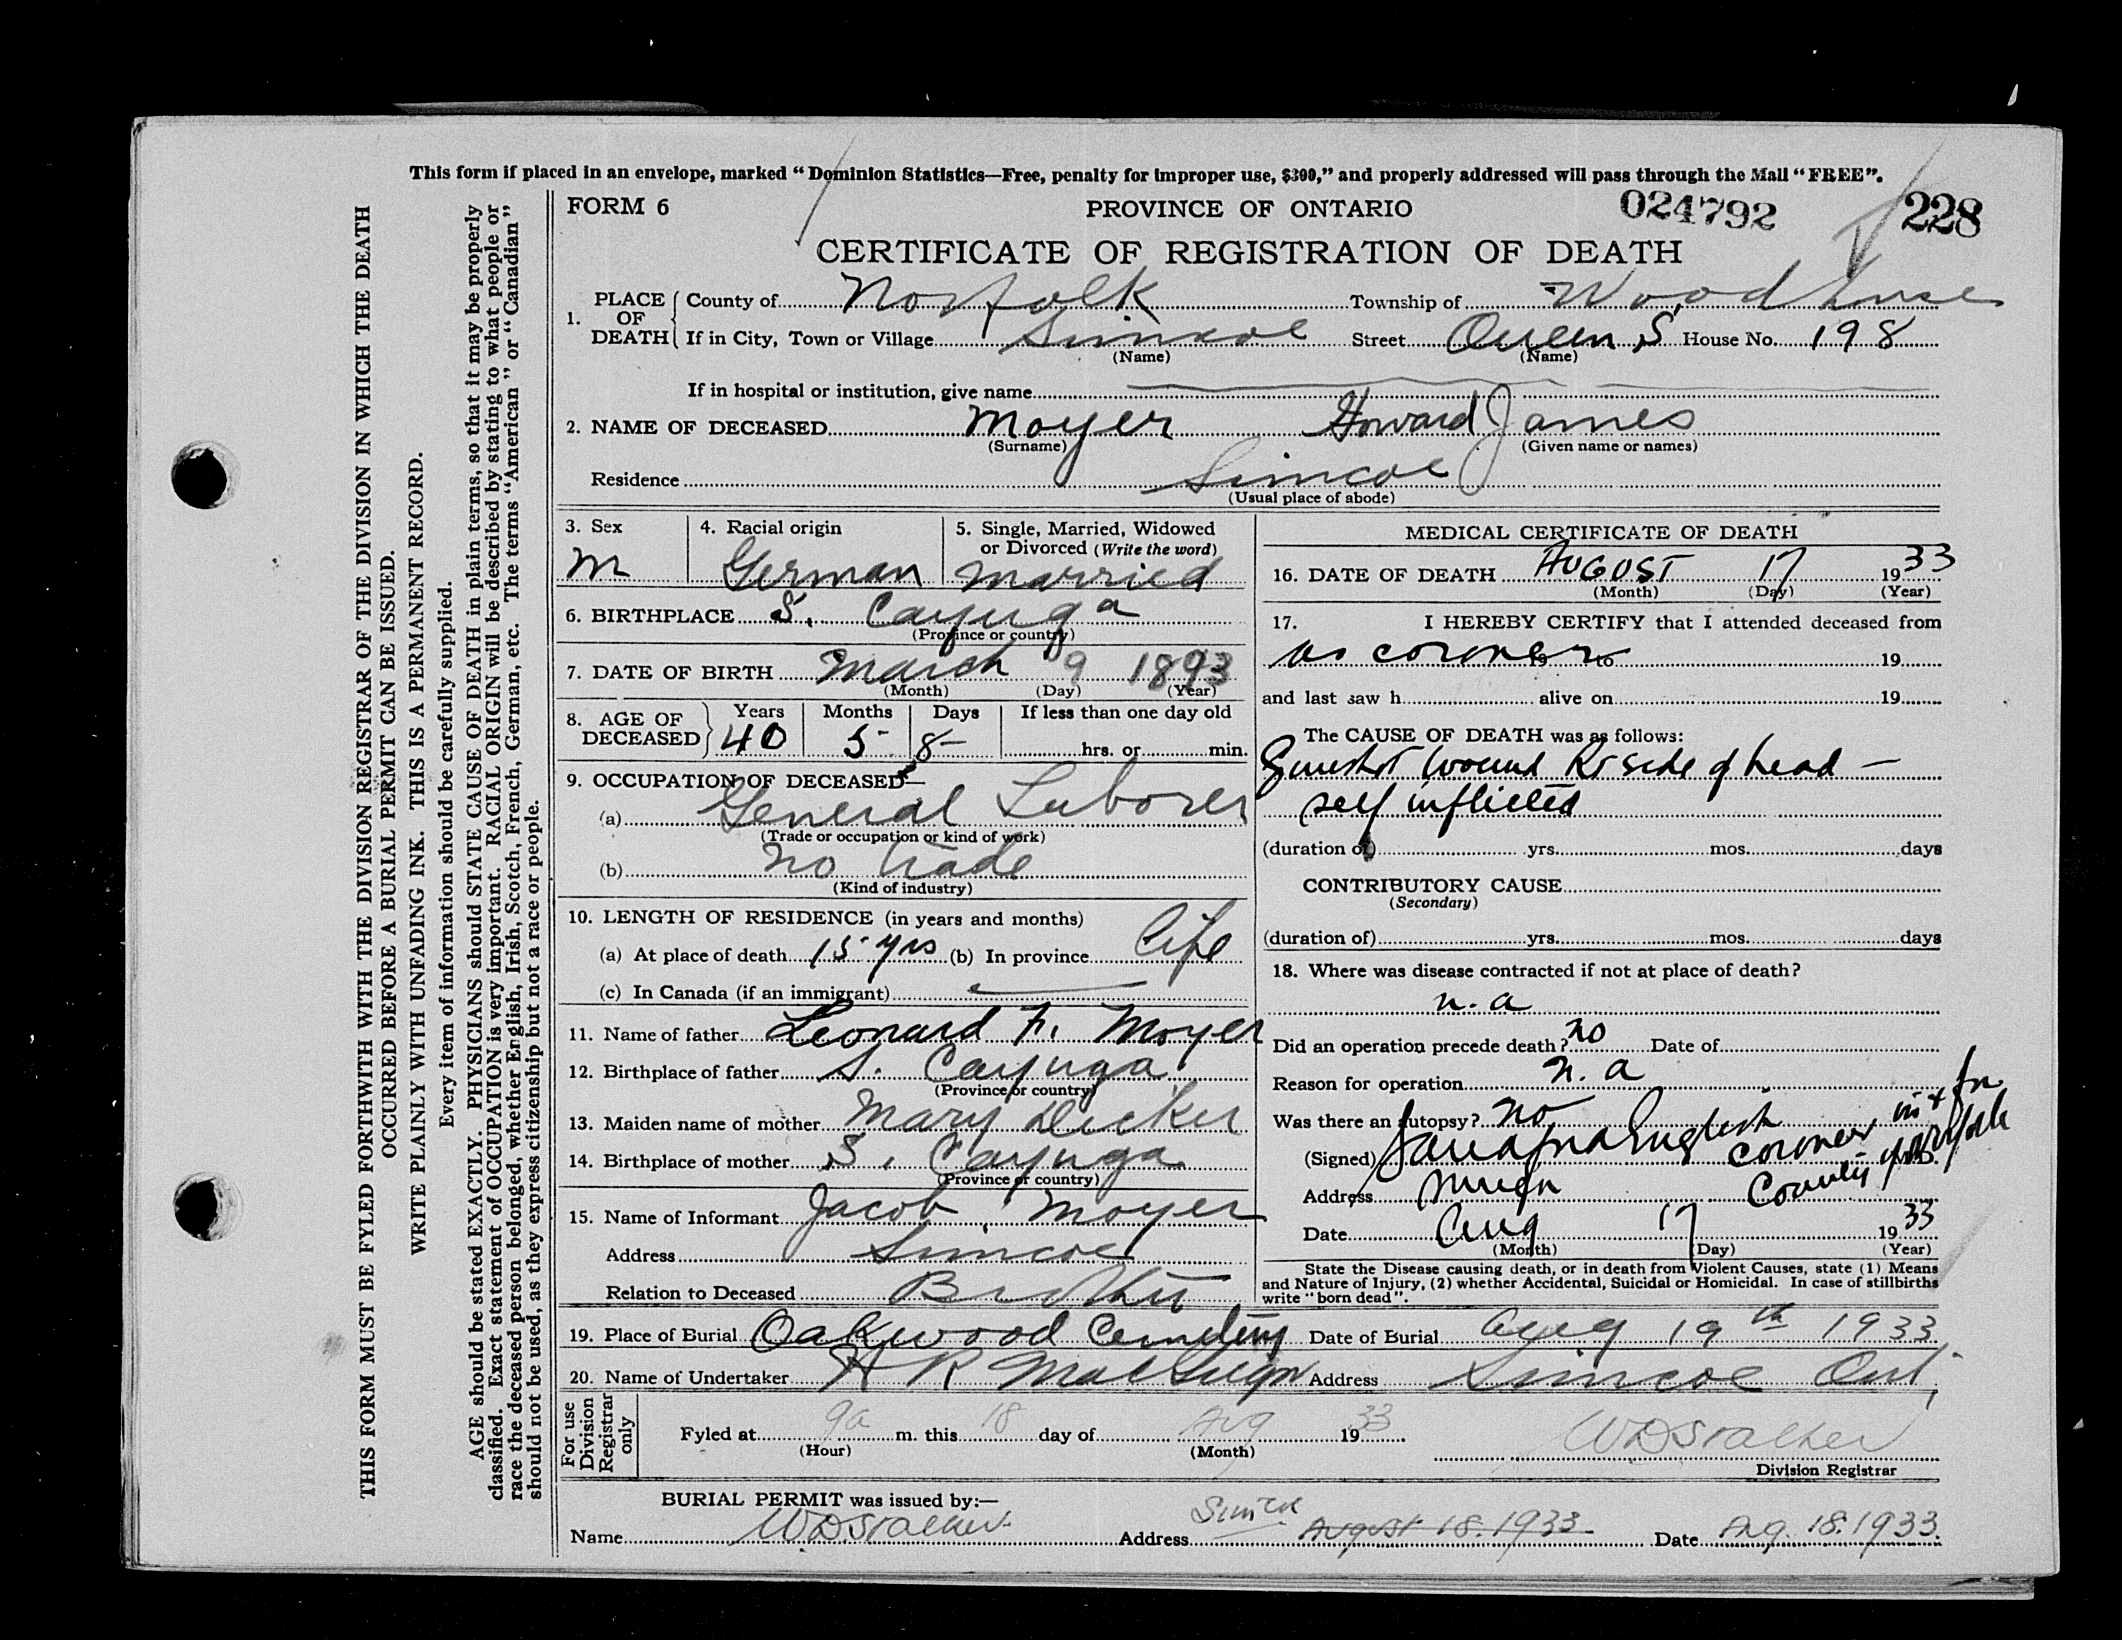 This form if placed in an envelope, marked "Dominion Statistics—Free, penalty for improper use, $300," and properly addressed will pass through the Mail "FREE".
FORM 6 PROVINCE OF ONTARIO 024792 228
CERTIFICATE OF REGISTRATION OF DEATH
1. PLACE OF DEATH County of Norfolk Township of Woodhouse
If in City, Town or Village Simcoe Street Queen S. House No. 198
(Name) (Name)
If in hospital or institution, give name
2. NAME OF DECEASED Moyer Howard James
(Surname) (Given name or names)
Residence Simcoe
(Usual place of abode)
3. Sex M
4. Racial origin German
5. Single, Married, Widowed or Divorced (Write the word) Married
6. BIRTHPLACE S. Cayuga
(Province or country)
7. DATE OF BIRTH March 9 1893
(Month) (Day) (Year)
8. AGE OF DECEASED Years Months Days If less than one day old
40 5 8 hrs. or min.
9. OCCUPATION OF DECEASED—
(a) General Laborer
(Trade or occupation or kind of work)
(b) No trade
(Kind of industry)
10. LENGTH OF RESIDENCE (in years and months)
(a) At place of death 15 yrs (b) In province Life
(c) In Canada (if an immigrant)
11. Name of father Leonard F. Moyer
12. Birthplace of father S. Cayuga
(Province or country)
13. Maiden name of mother Mary Decker
14. Birthplace of mother S. Cayuga
(Province or country)
15. Name of Informant Jacob Moyer
Address Simcoe
Relation to Deceased Brother
MEDICAL CERTIFICATE OF DEATH
16. DATE OF DEATH AUGUST 17 1933
(Month) (Day) (Year)
17. I HEREBY CERTIFY that I attended deceased from
as coroner 19 to 19
and last saw h alive on 19
The CAUSE OF DEATH was as follows:
Gunshot wound Rt side of head —
self inflicted
(duration of) yrs. mos. days
CONTRIBUTORY CAUSE
(Secondary)
(duration of) yrs. mos. days
18. Where was disease contracted if not at place of death?
n.a
Did an operation precede death? no Date of
Reason for operation n.a
Was there an autopsy? no
(Signed) English coroner in & for
Address County of Norfolk
Date Aug 17 1933
(Month) (Day) (Year)
State the Disease causing death, or in death from Violent Causes, state (1) Means
and Nature of Injury, (2) whether Accidental, Suicidal or Homicidal. In case of stillbirths
write "born dead".
19. Place of Burial Oakwood Cemetery Date of Burial Aug 19th 1933
20. Name of Undertaker H R Address Simcoe Ont.
For use Division Registrar only
Fyled at 9a m. this 18 day of Aug 1933
(Hour) (Month)
WDStalker
Division Registrar
BURIAL PERMIT was issued by:—
Name WDStalker Address Simcoe August 18. 1933 Date Aug. 18. 1933.
THIS FORM MUST BE FYLED FORTHWITH WITH THE DIVISION REGISTRAR OF THE DIVISION IN WHICH THE DEATH
OCCURRED BEFORE A BURIAL PERMIT CAN BE ISSUED.
WRITE PLAINLY WITH UNFADING INK. THIS IS A PERMANENT RECORD.
Every item of information should be carefully supplied.
AGE should be stated EXACTLY. PHYSICIANS should STATE CAUSE OF DEATH in plain terms, so that it may be properly
classified. Exact statement of OCCUPATION is very important. RACIAL ORIGIN will be described by stating to what people or
race the deceased person belonged, whether English, Irish, Scotch, French, German, etc. The terms "American" or "Canadian"
should not be used, as they express citizenship but not a race or people.